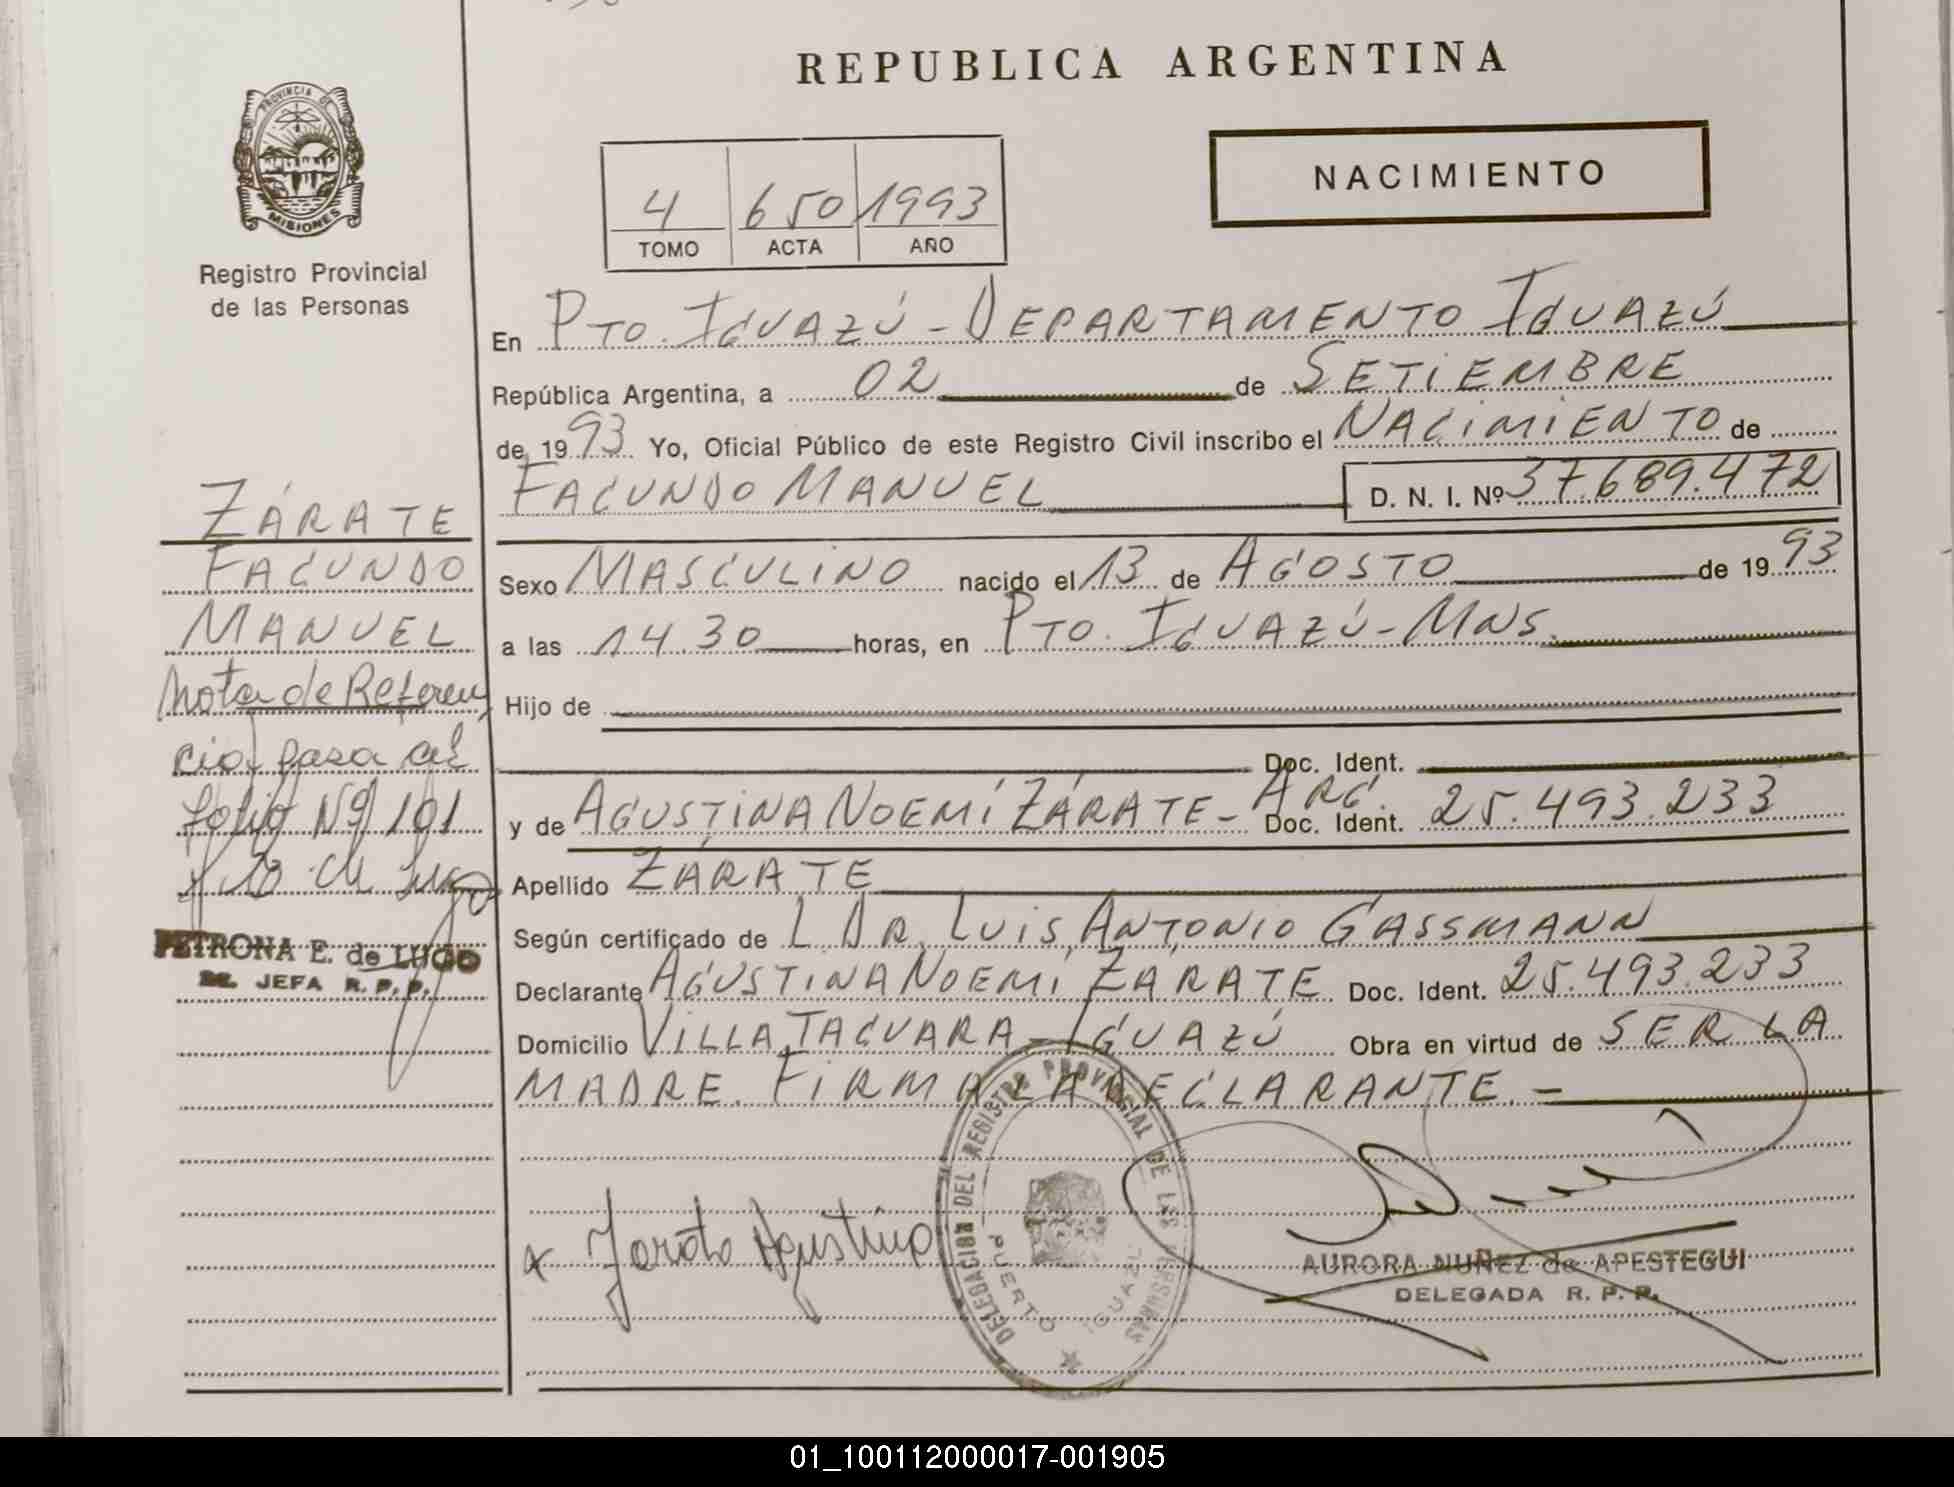 REPUBLICA ARGENTINA
PROVINCIA DE
MISIONES
Registro Provincial
de las Personas
4 650 1993
TOMO ACTA AÑO
NACIMIENTO
En PTO. IGUAZÚ - DEPARTAMENTO IGUAZÚ
República Argentina, a 02 de SETIEMBRE
de 1993 Yo, Oficial Público de este Registro Civil inscribo el NACIMIENTO de
FACUNDO MANUEL D. N. I. Nº 37.689.472
ZÁRATE
FACUNDO
MANUEL
Nota de Referen
cia pasa al
folio Nº 101
PETRONA E. de LUGO
JEFA R. P. P.
Sexo MASCULINO nacido el 13 de AGOSTO de 1993
a las 14.30 horas, en PTO. IGUAZÚ - MNS.
Hijo de
Doc. Ident.
y de AGUSTINA NOEMÍ ZÁRATE - ARG. Doc. Ident. 25.493.233
Apellido ZÁRATE
Según certificado de L DR. LUIS ANTONIO GASSMANN
Declarante AGUSTINA NOEMÍ ZÁRATE Doc. Ident. 25.493.233
Domicilio VILLA TACUARA - IGUAZÚ Obra en virtud de SER LA
MADRE. FIRMA LA DECLARANTE. -
x Zarate Agustina
DELEGACION DEL REGISTRO PROVINCIAL DE LAS PERSONAS
PUERTO IGUAZU
AURORA NUÑEZ de APESTEGUI
DELEGADA R. P. P.
01_100112000017-001905